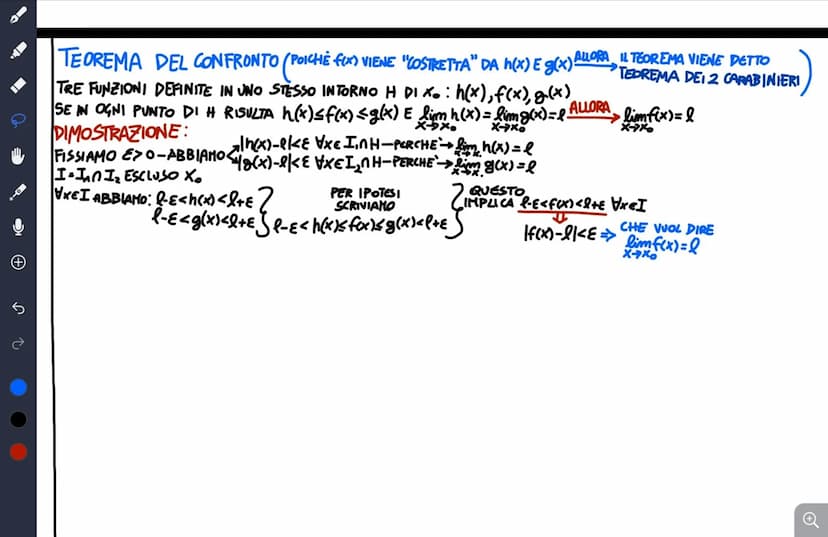 TEOREMA DEL CONFRONTO (POICHÈ f(x) VIENE "COSTRETTA" DA h(x) E g(x) ALLORA → IL TEOREMA VIENE DETTO TEOREMA DEI 2 CARABINIERI)
TRE FUNZIONI DEFINITE IN UNO STESSO INTORNO H DI X₀: h(x), f(x), g(x)
SE IN OGNI PUNTO DI H RISULTA h(x)≤f(x)≤g(x) E lim x→x₀ h(x)= lim x→x₀ g(x)=l ALLORA → lim x→x₀ f(x)=l
DIMOSTRAZIONE:
FISSIAMO ε>0-ABBIAMO
|h(x)-l|<ε ∀x∈I₁∩H-PERCHE'→ lim x→x₀ h(x)=l
|g(x)-l|<ε ∀x∈I₂∩H-PERCHE'→ lim x→x₀ g(x)=l
I=I₁∩I₂ ESCLUSO X₀
∀x∈I ABBIAMO: l-ε<h(x)<l+ε
l-ε<g(x)<l+ε
PER IPOTESI
SCRIVIAMO
l-ε<h(x)≤f(x)≤g(x)<l+ε
QUESTO
IMPLICA l-ε<f(x)<l+ε ∀x∈I
⇓
|f(x)-l|<ε ⇒ CHE VUOL DIRE
lim x→x₀ f(x)=l